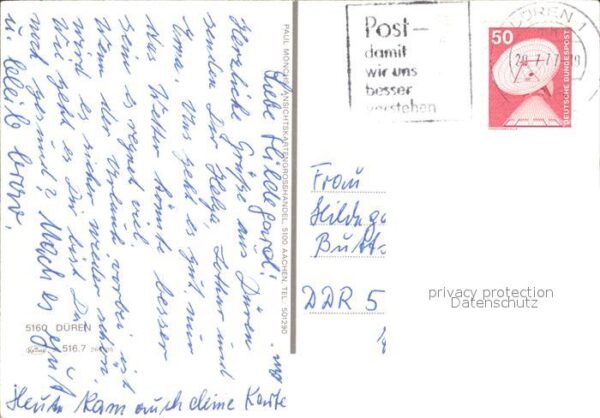 Liebe Hildegard!
Herzliche Grüße aus Düren
senden Dir Helga, Lothar und
Oma. Uns geht es gut nur
das Wetter könnte besser
sein. Es regnet viel.
Wenn der Urlaub vorbei ist
wird es sicher wieder schön.
Wie geht es Dir bist Du
noch gesund? Mach es gut
u. bleib brav.
Heute kam auch deine Karte
PAUL MÖNCH, ANSICHTSKARTENGROSSHANDEL, 5100 AACHEN, TEL. 501290
5160 DÜREN
516.7
Post-
damit
wir uns
besser
verstehen
DÜREN 1
50
DEUTSCHE BUNDESPOST
Frau
Hildega
Butt-
DDR 5
privacy protection
Datenschutz